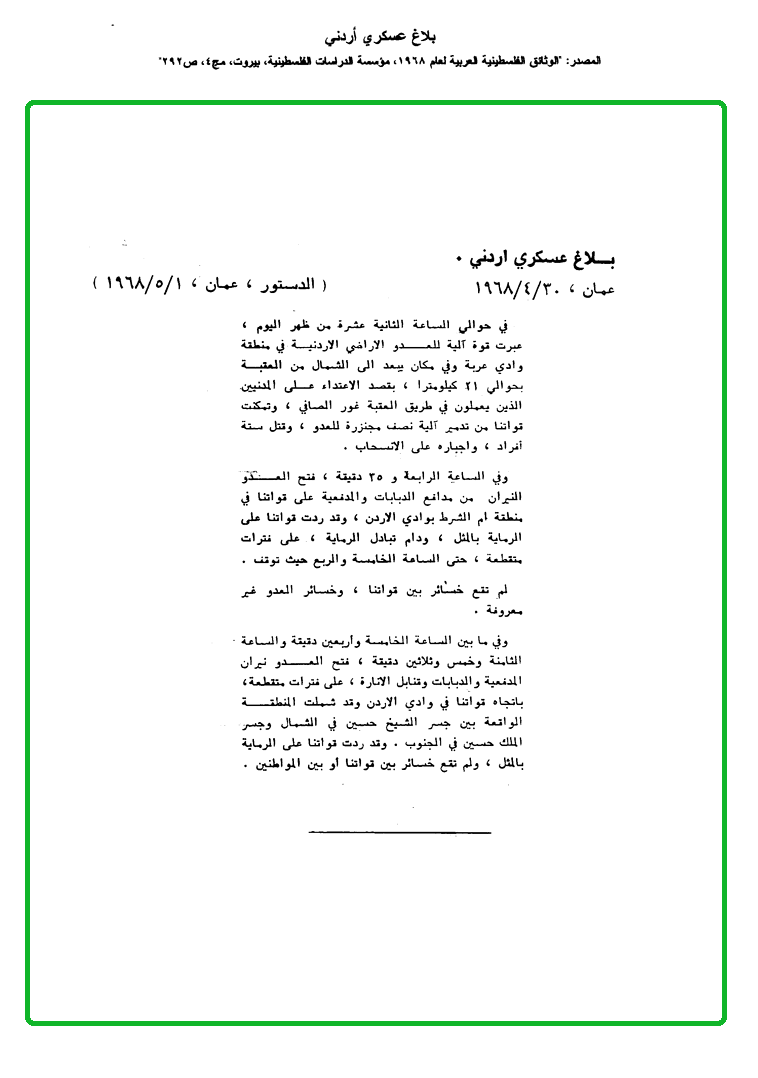 بلاغ عسكري أردني
المصدر: "الوثائق الفلسطينية العربية لعام ١٩٦٨، مؤسسة الدراسات الفلسطينية، بيروت، مج٤، ص٢٩٢"
بـــلاغ عسكري اردني .
عمان ، ٣٠/٤/١٩٦٨
( الدستور ، عمان ، ١/٥/١٩٦٨ )
في حوالي الساعة الثانية عشرة من ظهر اليوم ،
عبرت قوة آلية للعـــدو الاراضي الاردنيـــة في منطقة
وادي عربة وفي مكان يبعد الى الشمال من العقبـــة
بحوالي ٢١ كيلومترا ، بقصد الاعتداء عـــلى المدنيين
الذين يعملون في طريق العقبة غور الصافي ، وتمكنت
قواتنا من تدمير آلية نصف مجنزرة للعدو ، وقتل ستة
أفراد ، واجباره على الانسحاب .
وفي الساعة الرابعة و ٣٥ دقيقة ، فتح العـــدو
النيران من مدافع الدبابات والمدفعية على قواتنا في
منطقة ام الشرط بوادي الاردن ، وقد ردت قواتنا على
الرماية بالمثل ، ودام تبادل الرماية ، على فترات
متقطعة ، حتى الساعة الخامسة والربع حيث توقف .
لم تقع خسائر بين قواتنا ، وخسائر العدو غير
معروفة .
وفي ما بين الساعة الخامسة وأربعين دقيقة والساعة
الثامنة وخمس وثلاثين دقيقة ، فتح العـــدو نيران
المدفعية والدبابات وقنابل الانارة ، على فترات متقطعة،
باتجاه قواتنا في وادي الاردن وقد شملت المنطقـــة
الواقعة بين جسر الشيخ حسين في الشمال وجسر
الملك حسين في الجنوب . وقد ردت قواتنا على الرماية
بالمثل ، ولم تقع خسائر بين قواتنا أو بين المواطنين .